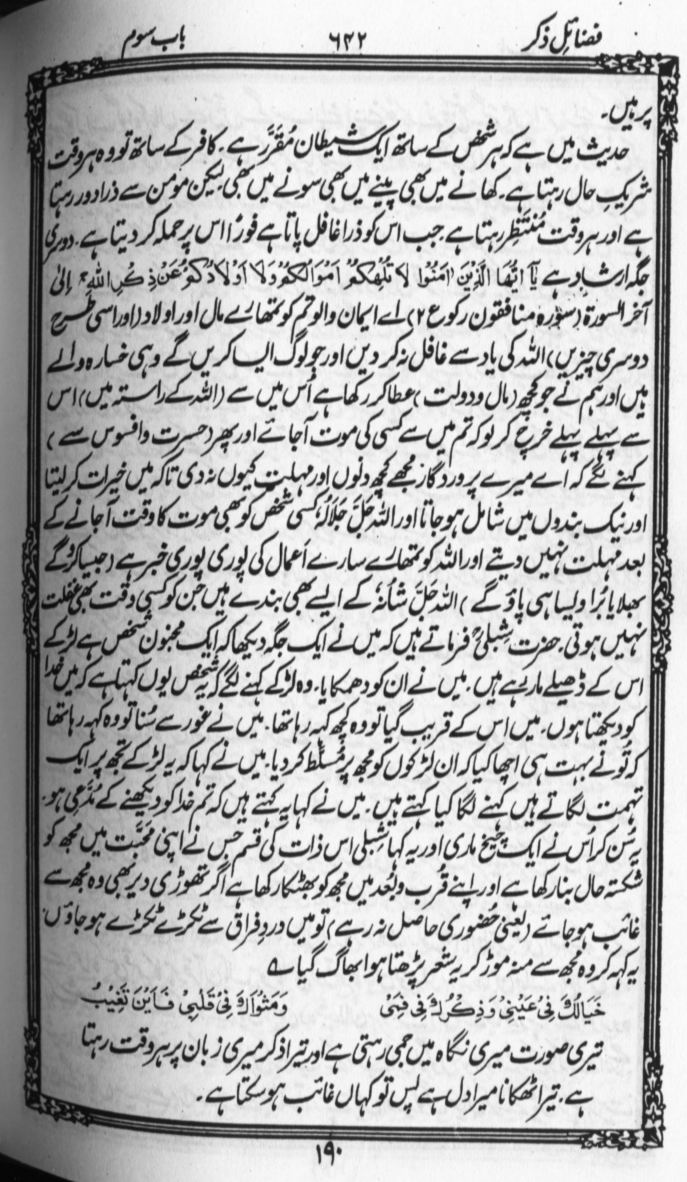 فضائلِ ذکر ۶۴۲ باب سوم
پر ہیں۔
حدیث میں ہے کہ ہر شخص کے ساتھ ایک شیطان مُقرَّر ہے۔ کافر کے ساتھ تو وہ ہر وقت
شریکِ حال رہتا ہے۔ کھانے میں بھی پینے میں بھی سونے میں بھی۔ لیکن مومن سے ذرا دور رہتا
ہے اور ہر وقت مُنتَظِر رہتا ہے جب اس کو ذرا غافل پاتا ہے فوراً اس پر حملہ کر دیتا ہے۔ دوسری
جگہ ارشاد ہے یٰۤاَیُّهَا الَّذِیْنَ اٰمَنُوْا لَا تُلْهِکُمْ اَمْوَالُکُمْ وَلَاۤ اَوْلَادُکُمْ عَنْ ذِکْرِ اللّٰهِ ۚ اِلیٰ
آخر السورۃ (سورہ منافقون رکوع ۲) اے ایمان والو تم کو تمھارے مال اور اولاد (اور اسی طرح
دوسری چیزیں) اللہ کی یاد سے غافل نہ کر دیں اور جو لوگ ایسا کریں گے وہی خسارہ والے
ہیں اور ہم نے جو کچھ (مال و دولت) عطا کر رکھا ہے اُس میں سے (اللہ کے راستہ میں) اس
سے پہلے پہلے خرچ کر لو کہ تم میں سے کسی کی موت آجائے اور پھر (حسرت و افسوس سے)
کہنے لگے کہ اے میرے پروردگار مجھے کچھ دنوں اور مہلت کیوں نہ دی تاکہ میں خیرات کر لیتا
اور نیک بندوں میں شامل ہو جاتا اور اللہ جَلَّ جَلَالُہٗ کسی شخص کو بھی موت کا وقت آجانے کے
بعد مہلت نہیں دیتے اور اللہ کو تمھارے سارے اَعمال کی پوری پوری خبر ہے (جیسا کرو گے
بھلا یا بُرا ویسا ہی پاؤ گے) اللہ جَلَّ شَانُہٗ کے ایسے بھی بندے ہیں جن کو کسی وقت بھی غفلت
نہیں ہوتی۔ حضرت شِبلیؒ فرماتے ہیں کہ میں نے ایک جگہ دیکھا کہ ایک مجنون شخص ہے لڑکے
اس کے ڈھیلے مار رہے ہیں۔ میں نے ان کو دھمکایا۔ وہ لڑکے کہنے لگے کہ یہ شخص یوں کہتا ہے کہ میں خدا
کو دیکھتا ہوں۔ میں اس کے قریب گیا تو وہ کچھ کہہ رہا تھا۔ میں نے غور سے سُنا تو وہ کہہ رہا تھا
کہ تُو نے بہت ہی اچھا کیا کہ ان لڑکوں کو مجھ پر مُسلَّط کر دیا۔ میں نے کہا کہ یہ لڑکے تجھ پر ایک
تہمت لگاتے ہیں کہنے لگا کیا کہتے ہیں۔ میں نے کہا یہ کہتے ہیں کہ تم خدا کو دیکھنے کے مُدَّعِی ہو۔
یہ سُن کر اُس نے ایک چیخ ماری اور یہ کہا شِبلی اس ذات کی قسم جس نے اپنی مَحبّت میں مجھ کو
شکستہ حال بنا رکھا ہے اور اپنے قُرب و بُعد میں مجھ کو بھٹکا رکھا ہے اگر تھوڑی دیر بھی وہ مجھ سے
غائب ہو جائے (یعنی حُضوری حاصل نہ رہے) تو میں دردِ فراق سے ٹکڑے ٹکڑے ہو جاؤں۔
یہ کہہ کر وہ مجھ سے منہ موڑ کر یہ شعر پڑھتا ہوا بھاگ گیا ؎
خَیَالُكَ فِیْ عَیْنِیْ وَذِکْرُكَ فِیْ فَمِیْ وَمَثْوَاكَ فِیْ قَلْبِیْ فَاَیْنَ تَغِیْبُ
تیری صورت میری نگاہ میں جمی رہتی ہے اور تیرا ذکر میری زبان پر ہر وقت رہتا
ہے۔ تیرا ٹھکانا میرا دل ہے پس تو کہاں غائب ہو سکتا ہے۔
۱۹۰